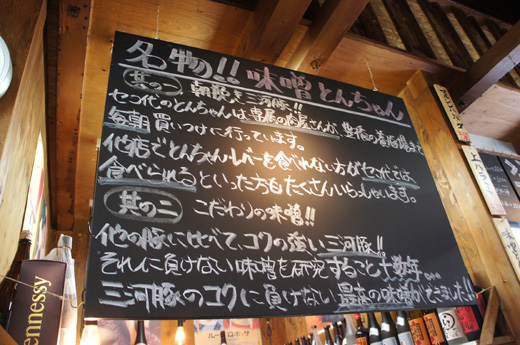 名物!! 味噌とんちゃん
其の一 朝挽き三河豚!!
セコ代のとんちゃんは専属の
毎朝買いつけに行っています。
他店でとんちゃん・レバーを食べれない方がセコ代では
食べられるといった方もたくさんいらっしゃいます。
其の二 こだわりの味噌!!
他の豚に比べて、コクの強い三河豚!!
それに負けない味噌を研究すること十数年...
三河豚のコクに負けない最高の味噌ができました!!
ennessy